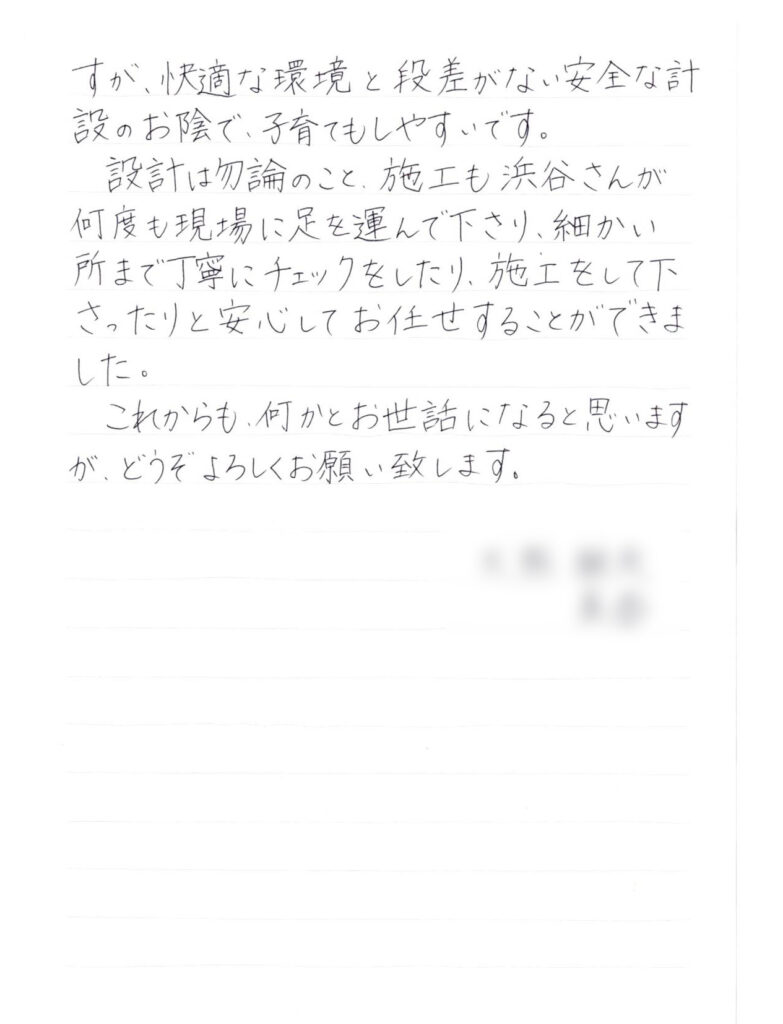 すが、快適な環境と段差がない安全な計
設のお陰で、子育てもしやすいです。
設計は勿論のこと、施工も浜谷さんが
何度も現場に足を運んで下さり、細かい
所まで丁寧にチェックをしたり、施工をして下
さったりと安心してお任せすることができま
した。
これからも、何かとお世話になると思います
が、どうぞよろしくお願い致します。